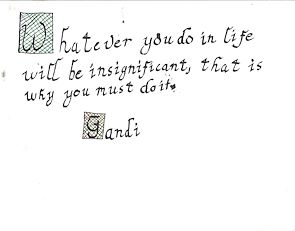 Whatever you do in life
will be insignificant, that is
why you must do it.
Gandi